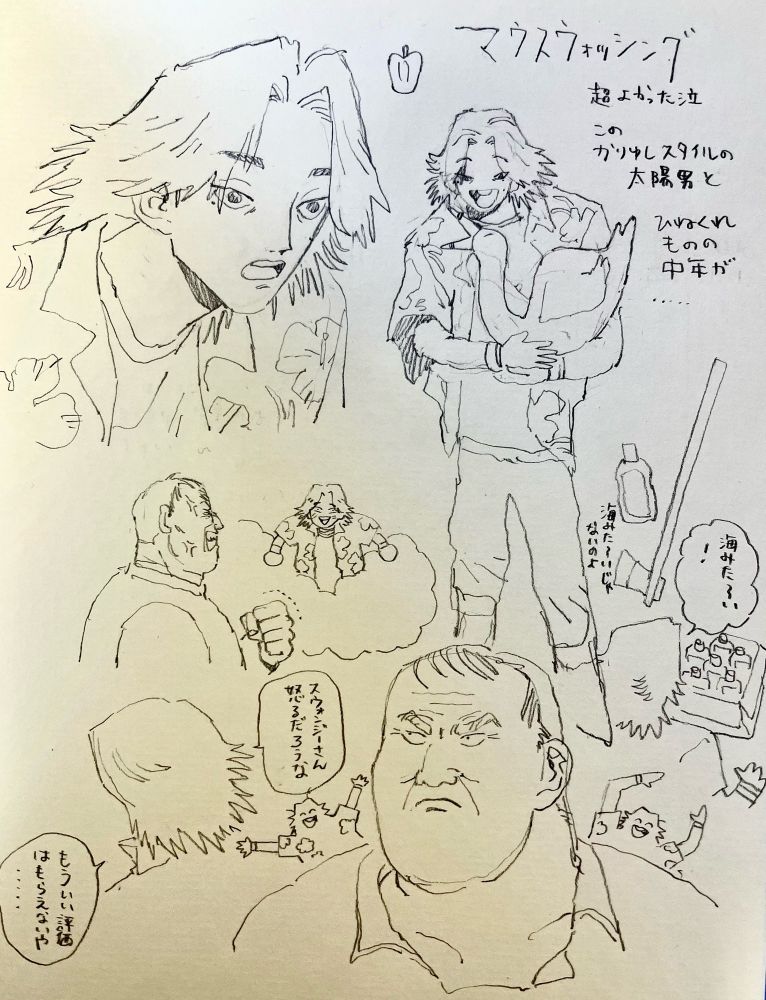 マウスウォッシング
超よかった泣
この
かりゆしスタイルの
太陽男と
ひねくれ
ものの
中年が
……
海みた〜いじゃ
ないのよ
海みた〜い
!
スウォンジーさん
怒るだろうな
もういい評価
はもらえないや
……